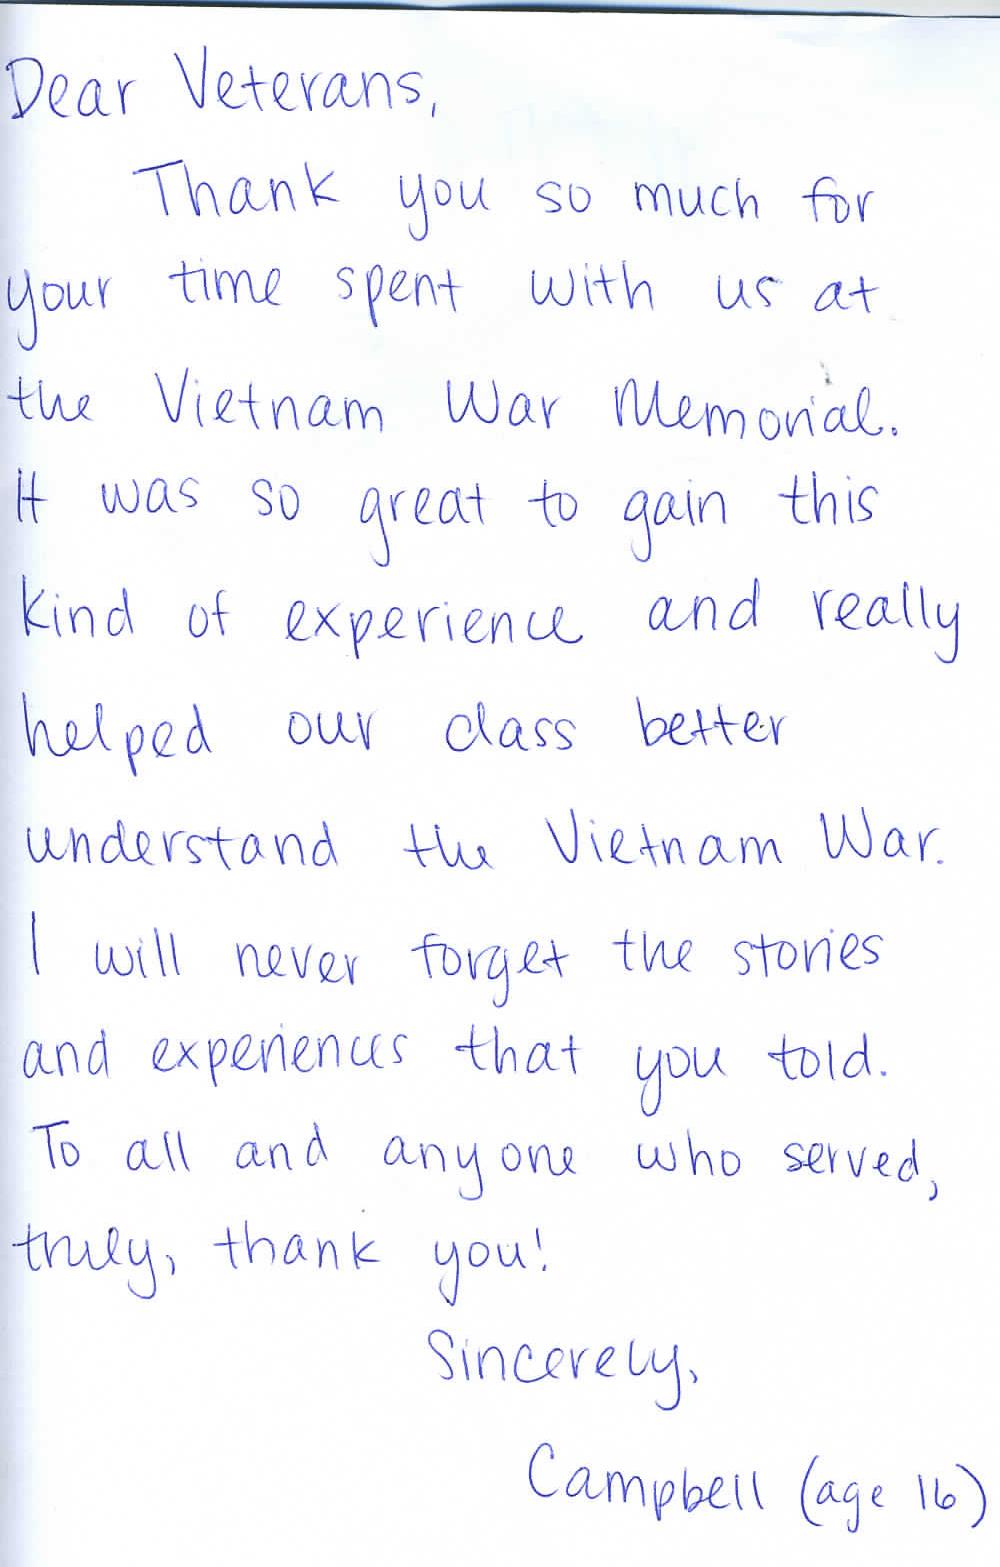 Dear Veterans,
Thank you so much for
your time spent with us at
the Vietnam War Memorial.
It was so great to gain this
kind of experience and really
helped our class better
understand the Vietnam War.
I will never forget the stories
and experiences that you told.
To all and anyone who served,
truly, thank you!
Sincerely,
Campbell (age 16)